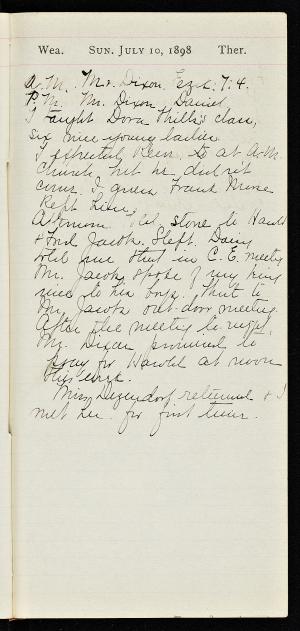 Wea. SUN. JULY 10, 1898 Ther.
A.M. Mr. Dixon. Ezek. 7:4.
P.M. Mr. Dixon Daniel
I taught Dora class,
six nice young ladies
I expected to at A.M.
Church but he did not
come. I guess Frank Morse
kept him.
Afternoon stone to Harold
& Jacobs. Slept. Daisy
told me that in C.E. meeting
Mr. Jacobs spoke of my being
nice to his boys. Went to
Mr. Jacobs out-door meeting.
After the meeting to night,
Mr. Dixon promised to
pray for Harold at noon
this week.
Miss returned & I
met her for first time.